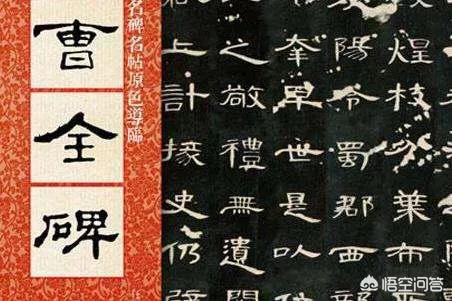 名碑名帖原色導臨
曹全碑
煌枝分葉布
陽令蜀郡西
幸早世是以
之敬禮無遺
上計掾史仍辟
悟空问答